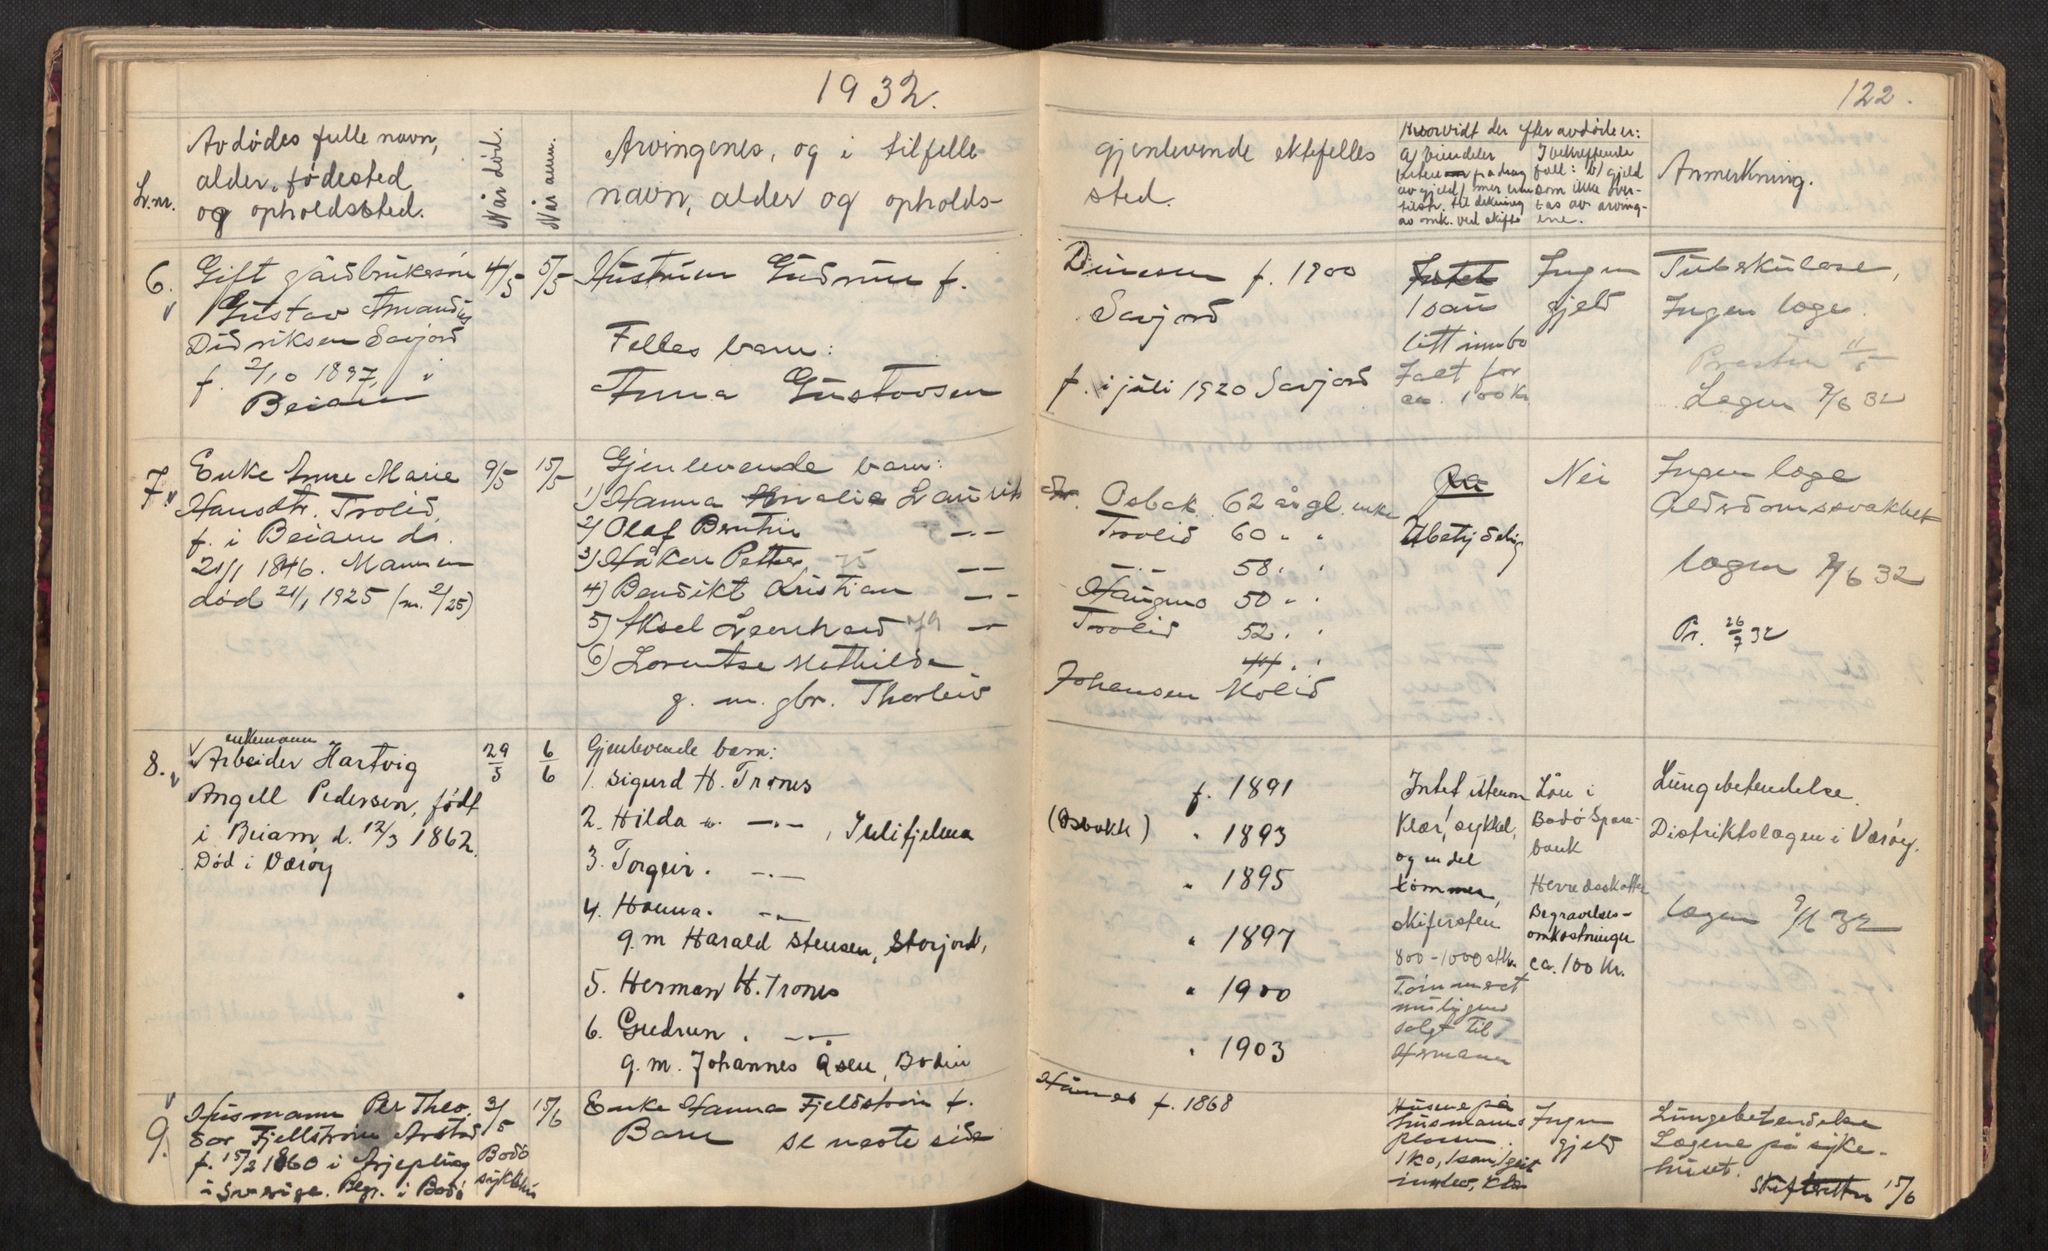 1932.
122.
L.nr.
Avdødes fulle navn,
alder, fødested
og opholdssted.
Når død.
Når anm.
Arvingenes, og i tilfelle
navn, alder og opholds-
gjenlevende ektefelles
sted.
Hvorvidt der efter avdøde er:
a) Eiendeler
fradrag
av gjeld) mer enn
tilstr. til dekning
av omk. ved skifte
I bekreftende
fall: b) gjeld
som ikke over-
tas av arving-
ene.
Anmerkning.
6.
Gift gårdbruker
Gustav Amandus
Didriksen Savjord
f. 2/10 1897, i
Beiarn
4/5
5/5
Hustruen Gudrun f.
Felles barn:
Anna Gustavsen
f. 1900
Savjord
f. i juli 1920 Savjord
Intet
1 sau
litt innbo
I alt for
ca. 100 kr
Ingen
gjeld
Tuberkulose,
Ingen læge.
Presten 11/5
Lægen 7/6 32
7.
Enke Anne Marie
Hansdtr. Trolid,
f. i Beiarn d.
21/1 1846. Mannen
død 21/1 1925 (m. 2/25)
9/5
15/5
Gjenlevende barn:
1) Hanna Amalie Laurits
2) Olaf Berntin —·—
3) Håkon Petter —·—
4) Benedikt Kristian —·—
5) Aksel Leonhard —
6) Lorentse Mathilde
g. m. gbr. Thorleiv
dtr. Osbak 62 år gl. enke
Trolid 60 " "
—·— 58 " "
Haugmo 50 " "
Trolid 52 " "
44 " "
Johansen Molid
Ja
Ubetydelig
Nei
Ingen læge
Alderdomssvakhet
lægen 7/6 32
Pr. 26/7 32
8.
enkemann
Arbeider Hartvig
Angell Pedersen, født
i Beiarn, d. 12/3 1862.
Død i Værøy
29/5
6/6
Gjenlevende barn:
1. Sigurd H. Trones
2. Hilda " —·—, Tulifjelma
3. Torgeir. —·—
4. Hanna. —·—
g.m Harald Stensen, Storjord,
5. Herman H. Trones
6. Gudrun. —·—
g. m. Johannes Åsen, Bodin
f. 1891
(Osbakk) " 1893
" 1895
" 1897
" 1900
" 1903
Intet utenom
klær, sykkel,
og en del
tømmer,
skifersten
800-1000 stk.
Tømmeret
muligens
solgt til
Hermann
Lån i
Bodø Spare-
bank
Herredsskatter
Begravelses-
omkostninger
ca. 100 kr.
Lungebetendelse.
Distriktslægen i Værøy.
lægen 7/6 32
9.
Husmann Per Theo-
dor Fjellstrøm Arstad
f. 15/2 1860 i Arjeplog
i Sverige. Begr. i Bodø
3/5
Bodø
sykehus
15/6
Enke Hanna Fjeldstrøm f.
Barn se næste side
Hannes f. 1868
Husene på
husmanns-
plassen.
1 ko, 1 sau, 1 geit
innbo, klær
Ingen
gjeld
Lungebetendelse
Lægene på syke-
huset.
Skifteretten 15/6